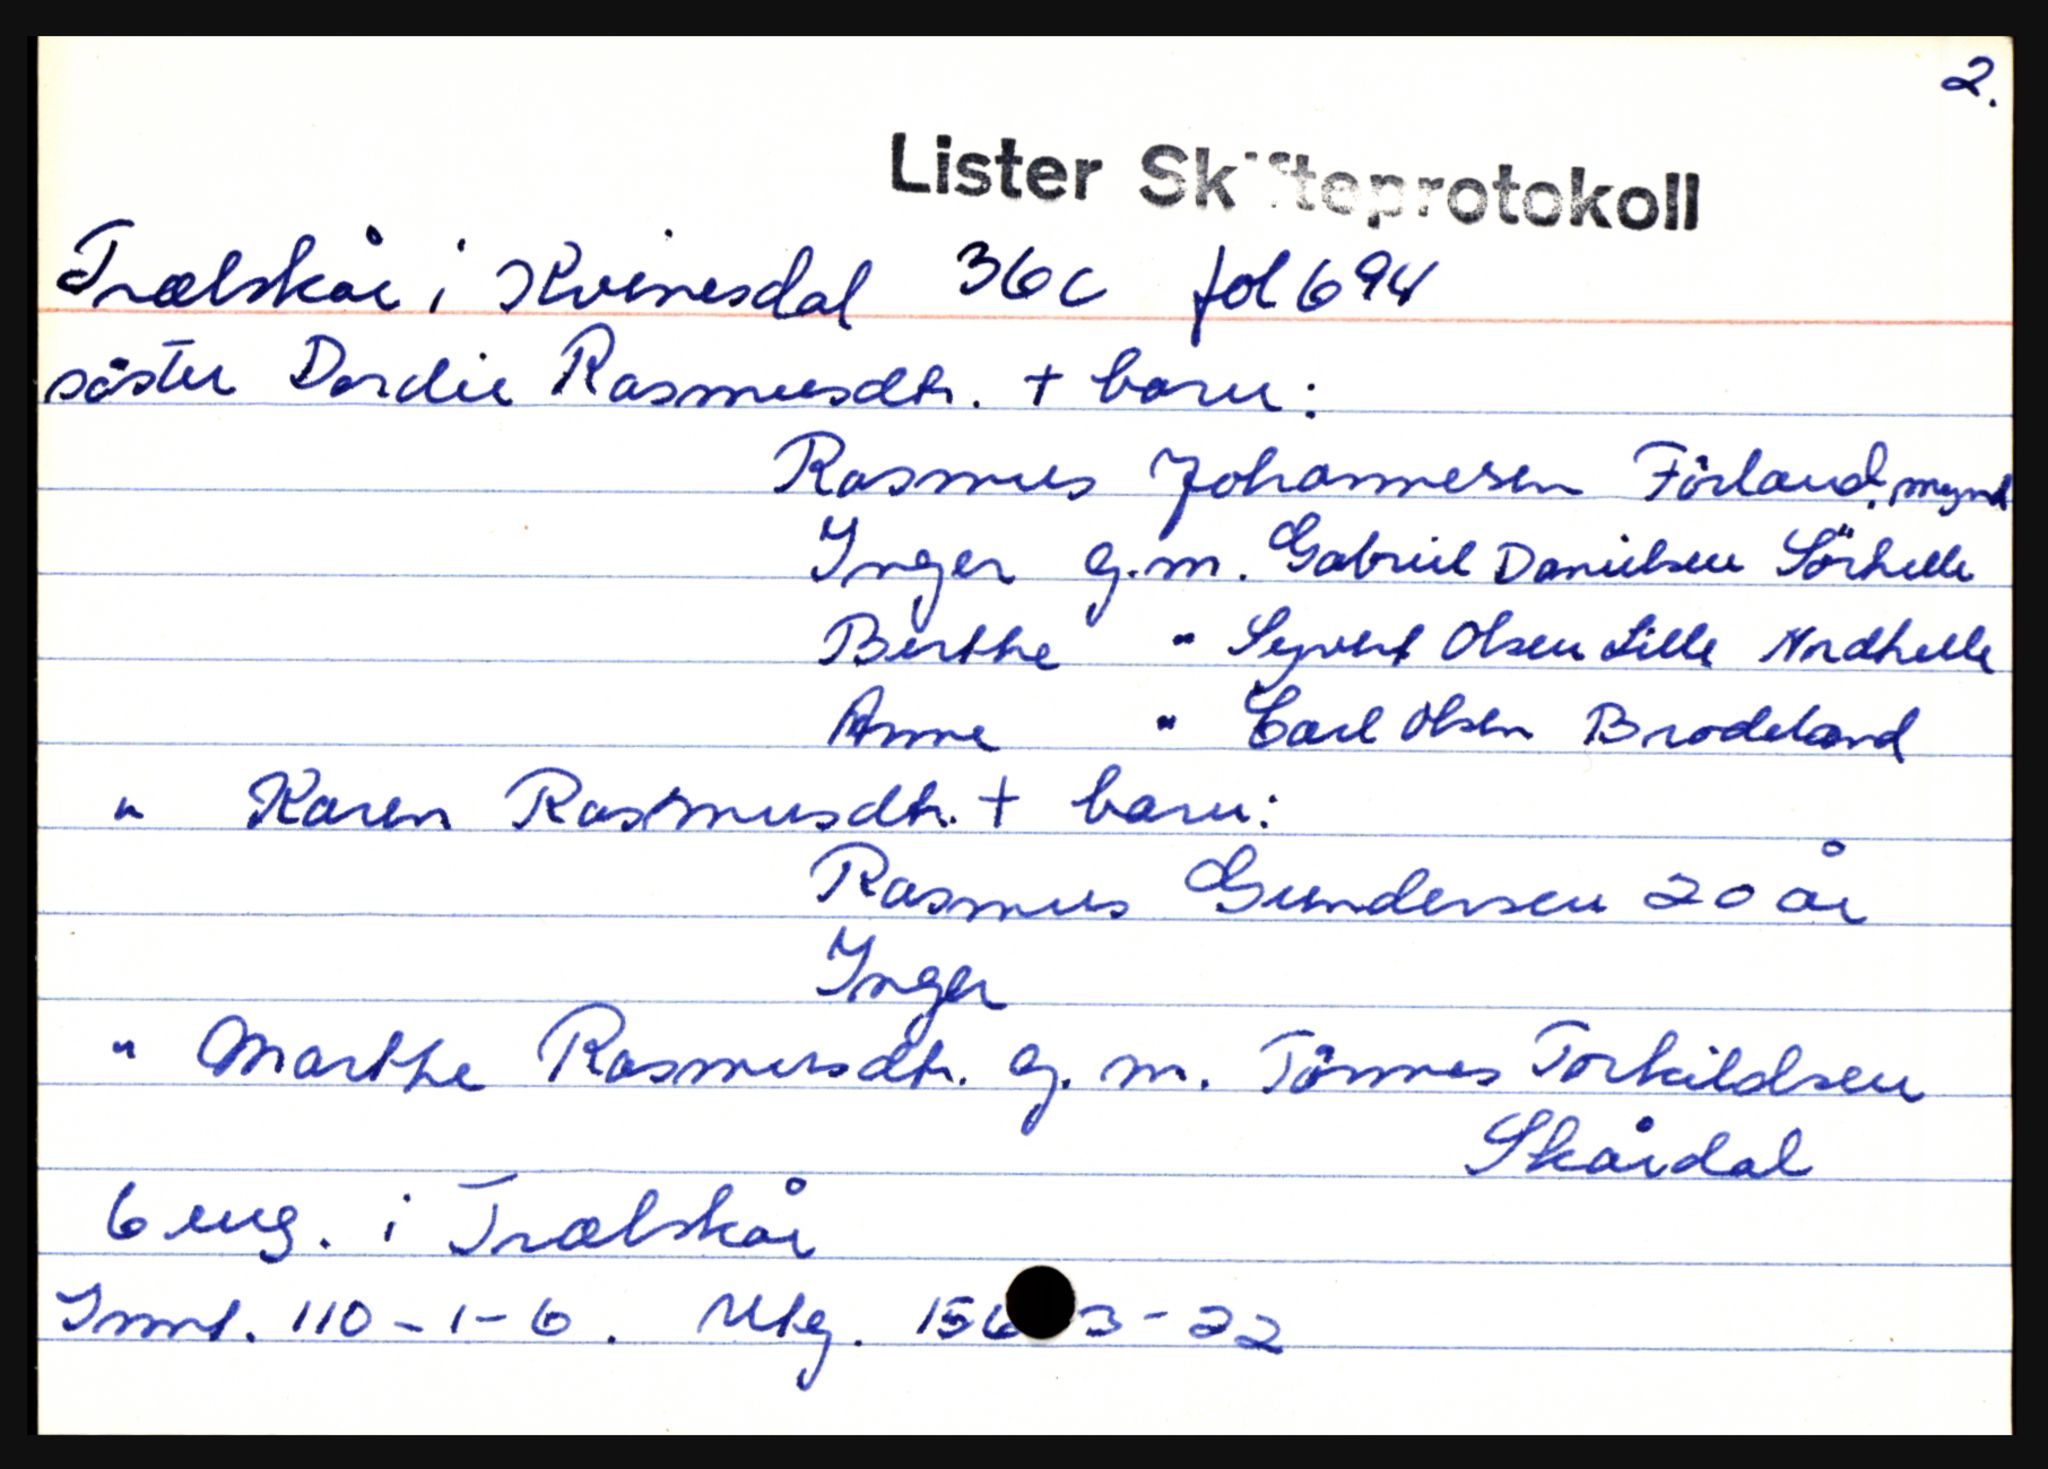 2.
Lister Skifteprotokoll
Trælskår i Kvinesdal 36c fol 694
söster Dordie Rasmusdtr. + barn:
Rasmus Johannesen Förland, mynd
Inger g.m. Gabriel Danielsen Sörhelle
Berthe " Seyvert Olsen Lille Nordhelle
Anne " Carl Olsen Brodeland
" Karen Rasmusdtr. + barn:
Rasmus Gundersen 20 år
Inger
" Marthe Rasmusdtr. g. m. Tönnes Torkildsen
Skårdal
6 eng. i Trælskår
Innt. 110-1-6. Utg. 156 3-22